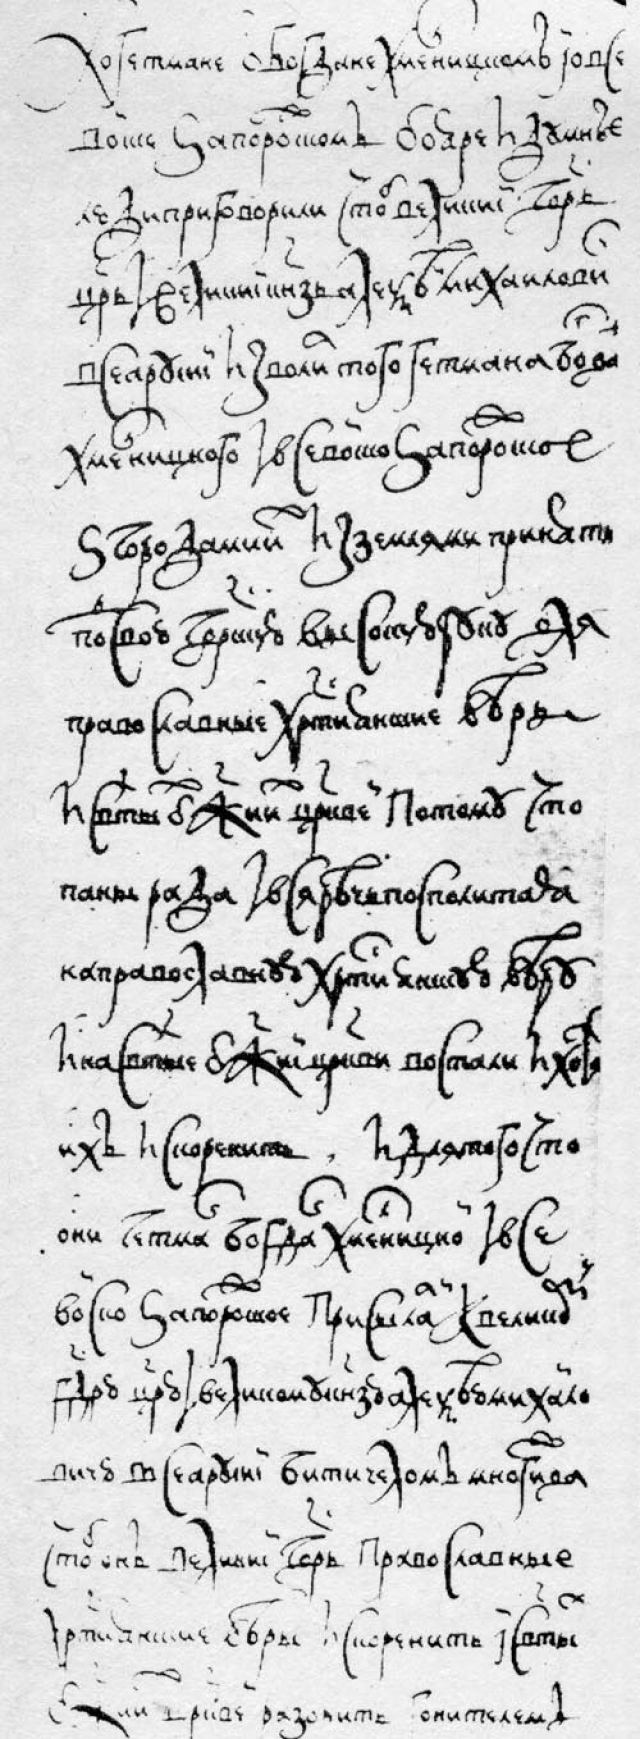 А о гетмане о богдане хмелницкомъ и о все
воиске запорожскомъ бояре и думные
люди приговорили чтоб великии гсдрь
црь и великии кнзь алеѯѣи михаилович
всеа русии изволил того гетмана богдана
хмелницкого и все воиско запорожское
з городами их и з землями принять
под свою гсдрскую высокую руку для
православные хрстиянские вѣры
и свтых бжиих црквеи потому что
паны рада и вся рѣчь посполитая
на православную хрстиянскую вѣру
и на свтые бжии цркви востали и хотят
ихъ искоренить, и для того что
они гетман богдан хмелницкои и все
воиско запорожское присылали к великому
гсдрю црю и великому кнзю алеѯѣю михаило
вичю всеа русии бити челомъ многижда
чтоб онъ великии гсдрь православные
хрстиянские вѣры искоренить и свтых
бжиих црквеи разорить гонителем